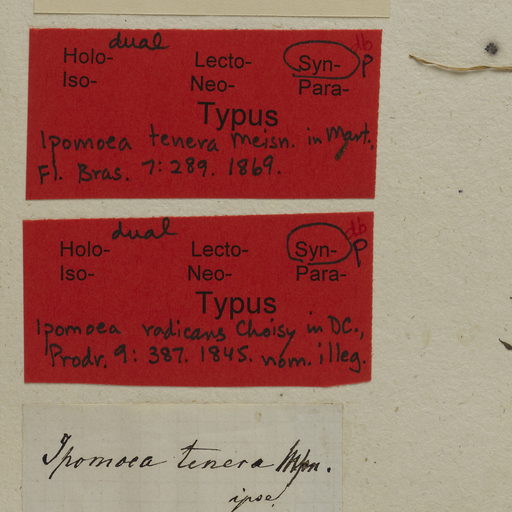 dual
Holo- Lecto- Syn- db
Iso- Neo- Para- P
Typus
Ipomoea tenera Meisn. in Mart.,
Fl. Bras. 7: 289. 1869.
dual
Holo- Lecto- Syn- db
Iso- Neo- Para- P
Typus
Ipomoea radicans Choisy in DC.,
Prodr. 9: 387. 1845. nom. illeg.
Ipomoea tenera Mpn.
ipse